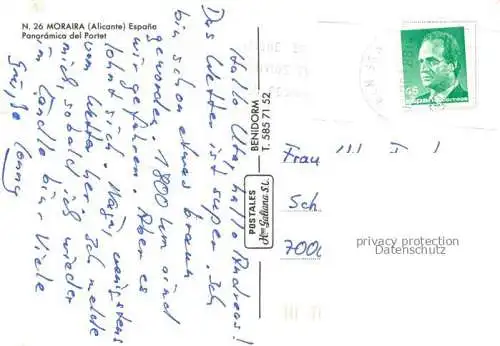 N. 26 MORAIRA (Alicante) España
Panorámica del Portet
Hallo Uta, hallo Andreas!
Das Wetter ist super. Ich
bin schon etwas braun
geworden. 1800 km sind
wir gefahren. Aber es
lohnt sich. Naja, wenigstens
vom Wetter her. Ich melde
mich, sobald ich wieder
im Ländle bin. Viele
Grüße Conny
POSTALES
Hnos Galiana S.L.
BENIDORM
T. 585 71 52
45
España correos
Frau
Sch
700
privacy protection
Datenschutz